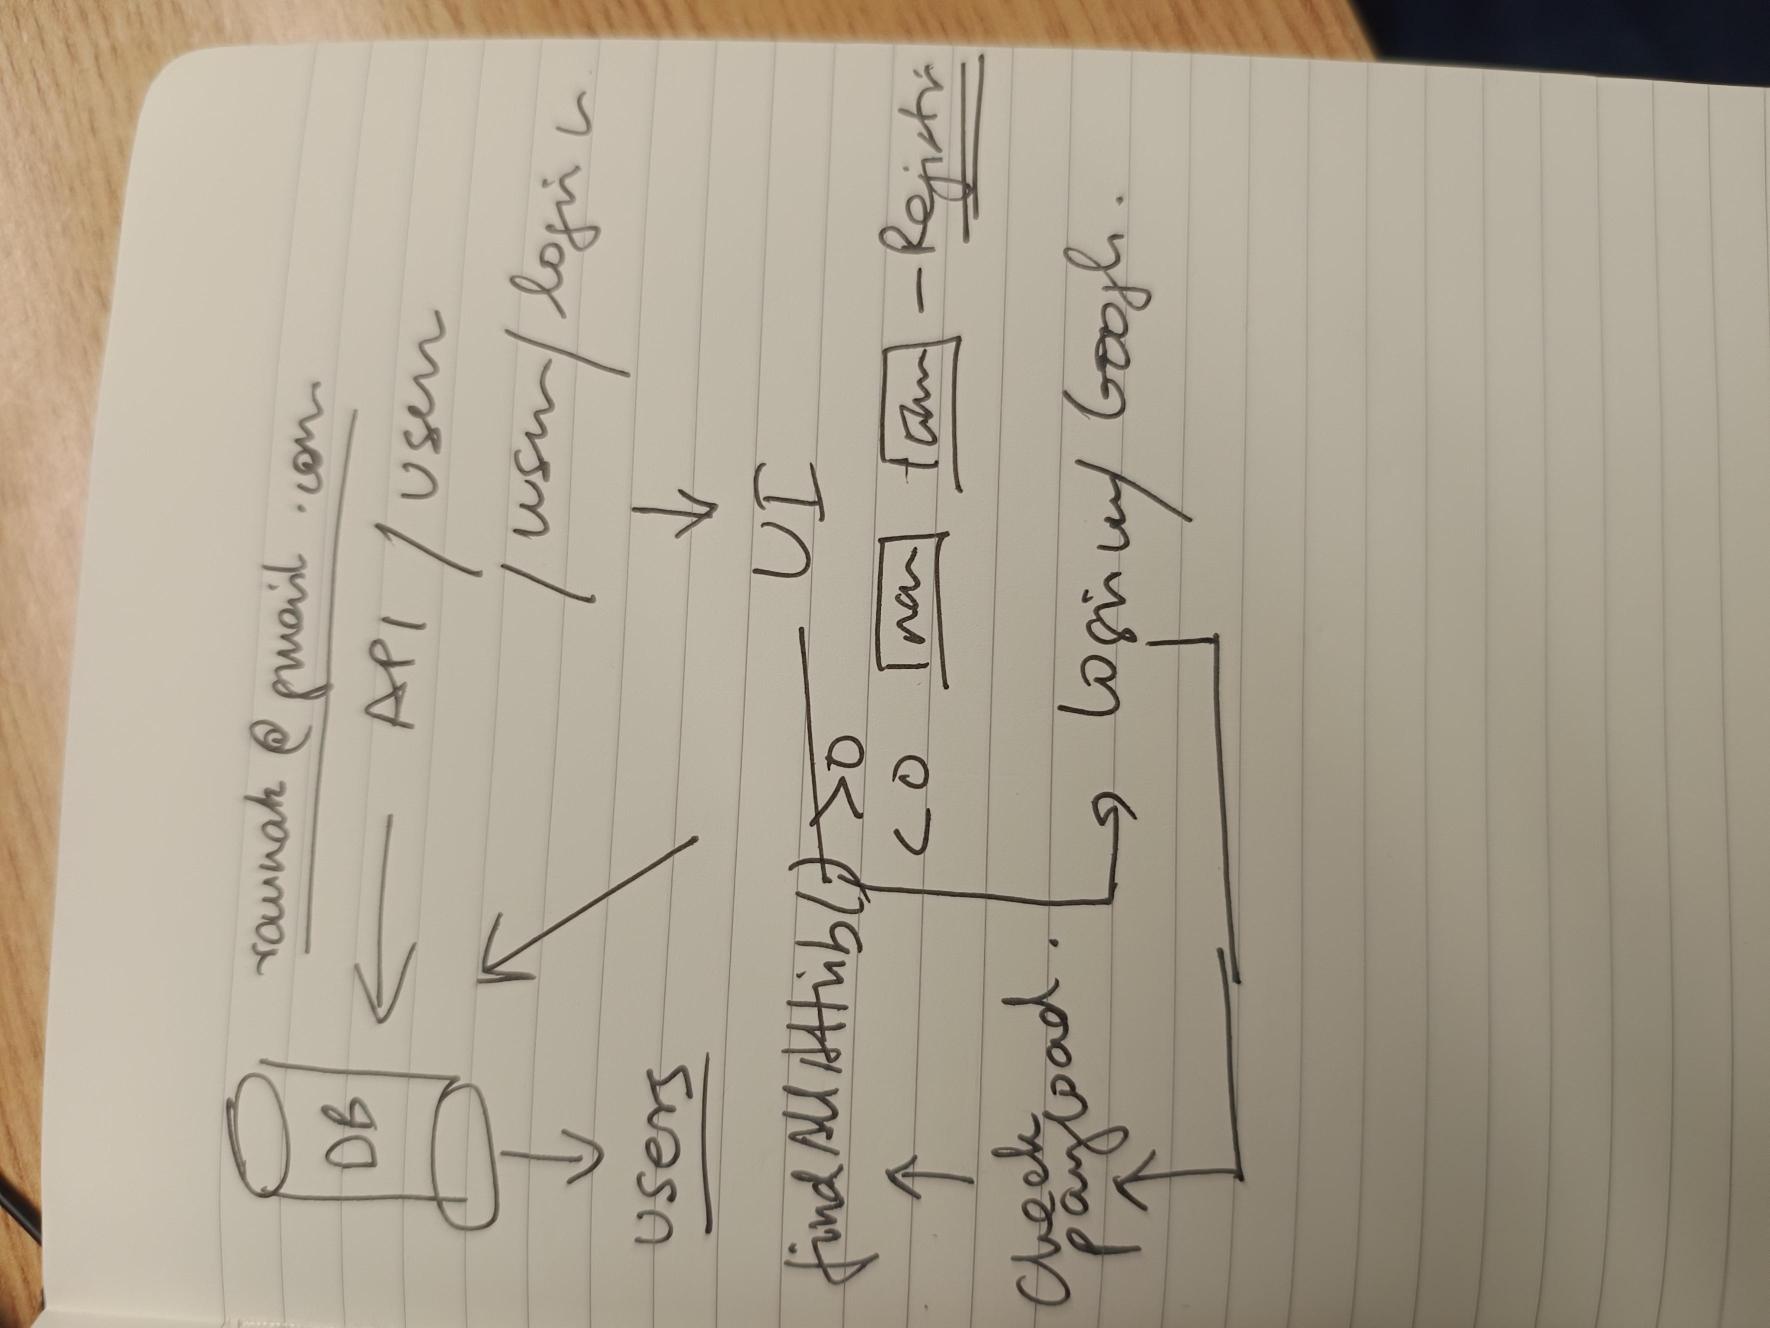 raunak @ gmail .com
DB
API / user
/ user / login
users
UI
findAllAttrib() >0
< 0
nam
- Registr
Check
payload.
Login w/ Google.